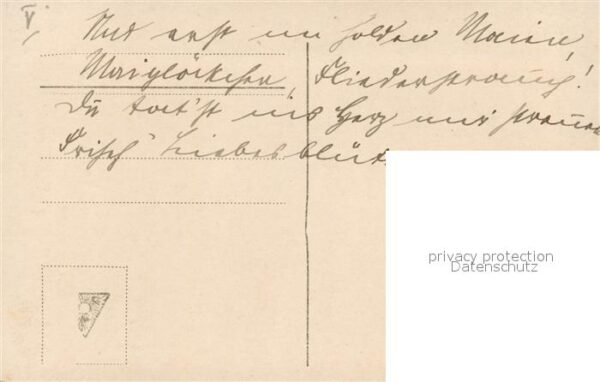 V,
Und erst im holden Maien,
Maiglöckchen, Fliederstrauch!
Du tat'st ins Herz mir streuen
Frisch' Liebesblüt
privacy protection
Datenschutz